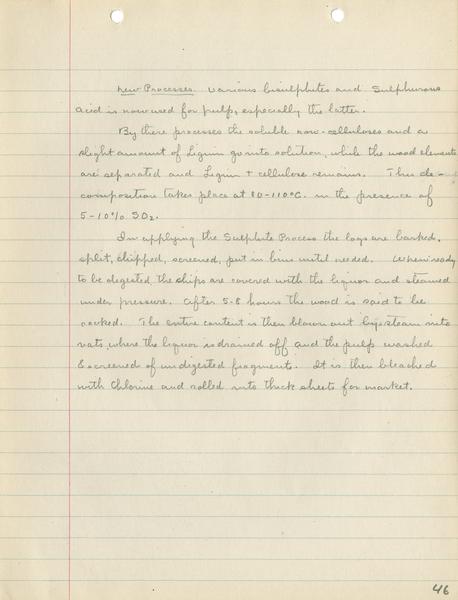 New Processes. Various bisulphites and Sulphurous
acid is now used for pulp, especially the latter.
By these processes the soluble non-celluloses and a
slight amount of Lignin go into solution, while the wood elements
are separated and Lignin + cellulose remains. This de-
composition takes place at 80-110°C. in the presence of
5-10% SO2.
In applying the Sulphite Process the logs are barked,
split, chipped, screened, put in bins until needed. When ready
to be degested the chips are covered with the liquor and steamed
under pressure. After 5-8 hours the wood is said to be
cooked. The entire content is then blown out by steam into
vats, where the liquor is drained off and the pulp washed
& screened of undigested fragments. It is then bleached
with Chlorine and rolled into thick sheets for market.
46